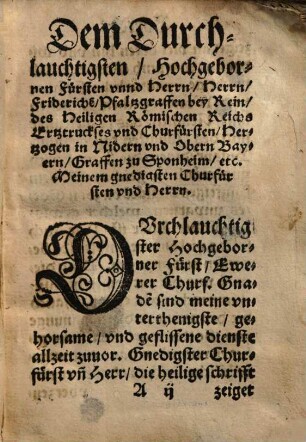 Dem Durch-
lauchtigsten / Hochgebor-
nen Fürsten vnnd Herrn / Herrn /
Friderichē / Pfaltzgraffen bey Rein /
des Heiligen Römischen Reichs
Ertztruckses vnd Churfürsten / Her-
tzogen in Nidern vnd Obern Bay-
ern / Graffen zu Sponheim / etc.
Meinem gnedigsten Churfür
sten vnd Herrn.
DVrchlauchtig
ster Hochgebor-
ner Fürst / Ewe-
rer Churf. Gna-
dē sind meine vn-
terthenigste / ge-
horsame / vnd geflissene dienste
allzeit zuuor. Gnedigster Chur-
fürst vñ Herr / die heilige schrifft
A ij zeiget